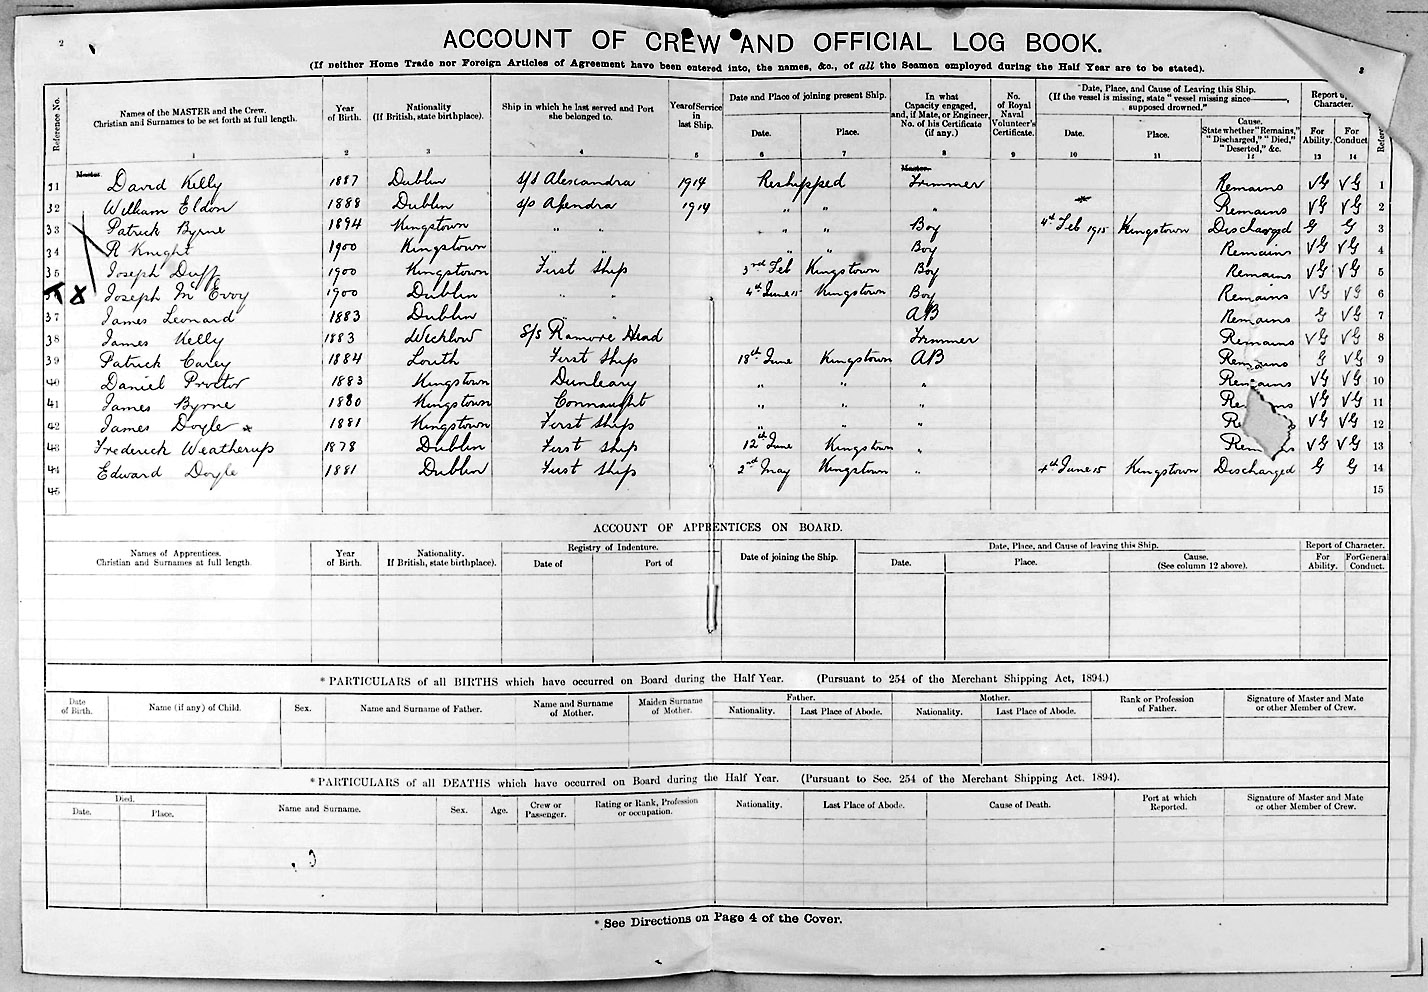 2
ACCOUNT OF CREW AND OFFICIAL LOG BOOK.
3
(If neither Home Trade nor Foreign Articles of Agreement have been entered into, the names, &c., of all the Seamen employed during the Half Year are to be stated).
Reference No. Names of the MASTER and the Crew. Christian and Surnames to be set forth at full length. Year of Birth. Nationality (If British, state birthplace). Ship in which he last served and Port she belonged to. Year of Service in last Ship. Date and Place of joining present Ship. Date. Place. In what Capacity engaged, and, if Mate, or Engineer, No. of his Certificate (if any). No. of Royal Naval Volunteer's Certificate. Date, Place, and Cause of Leaving this Ship. (If the vessel is missing, state "vessel missing since———, supposed drowned." Date. Place. Cause. State whether "Remains," "Discharged," "Died," "Deserted," &c. Report Character. For Ability. For Conduct
1 2 3 4 5 6 7 8 9 10 11 12 13 14
Master. Master.
31 David Kelly 1887 Dublin s/s Alexandra 1914 Reshipped Trimmer Remains VG VG 1
32 William Eldon 1888 Dublin s/s Apendra 1914 " " " Remains VG VG 2
33 Patrick Byrne 1894 Kingstown " " " " Boy 4th Feb 1915 Kingstown Discharged G G 3
34 R Knight 1900 Kingstown " " " Boy Remains VG VG 4
35 Joseph Duff 1900 Kingstown First Ship 3rd Feb Kingstown Boy Remains VG VG 5
X Joseph McEvoy 1900 Dublin " " 4th June 15 Kingstown Boy Remains VG VG 6
37 James Leonard 1883 Dublin " " AB Remains G VG 7
38 James Kelly 1883 Wicklow S/S Ramore Head Trimmer Remains VG VG 8
39 Patrick Carey 1884 Louth First Ship 18th June Kingstown AB Remains G VG 9
40 Daniel Proctor 1883 Kingstown Dunleary " " " Remains VG VG 10
41 James Byrne 1880 Kingstown Connaught " " " VG VG 11
42 James Doyle x 1881 Kingstown First Ship " " " VG VG 12
43 Frederick Weatherup 1878 Dublin First Ship 12th June Kingstown " VG VG 13
44 Edward Doyle 1881 Dublin First Ship 2nd May Kingstown " 4th June 15 Kingstown Discharged G G 14
45 15
ACCOUNT OF APPRENTICES ON BOARD.
Names of Apprentices. Christian and Surnames at full length. Year of Birth. Nationality. If British, state birthplace). Registry of Indenture. Date of Port of Date of joining the Ship. Date, Place, and Cause of leaving this Ship. Date. Place. Cause. (See column 12 above). Report of Character. For Ability. For General Conduct.
* PARTICULARS of all BIRTHS which have occurred on Board during the Half Year. (Pursuant to 254 of the Merchant Shipping Act, 1894.)
Date of Birth. Name (if any) of Child. Sex. Name and Surname of Father. Name and Surname of Mother. Maiden Surname of Mother. Father. Nationality. Last Place of Abode. Mother. Nationality. Last Place of Abode. Rank or Profession of Father. Signature of Master and Mate or other Member of Crew.
* PARTICULARS of all DEATHS which have occurred on Board during the Half Year. (Pursuant to Sec. 254 of the Merchant Shipping Act. 1894).
Died. Date. Place. Name and Surname. Sex. Age. Crew or Passenger. Rating or Rank, Profession or occupation. Nationality. Last Place of Abode. Cause of Death. Port at which Reported. Signature of Master and Mate or other Member of Crew.
* See Directions on Page 4 of the Cover.